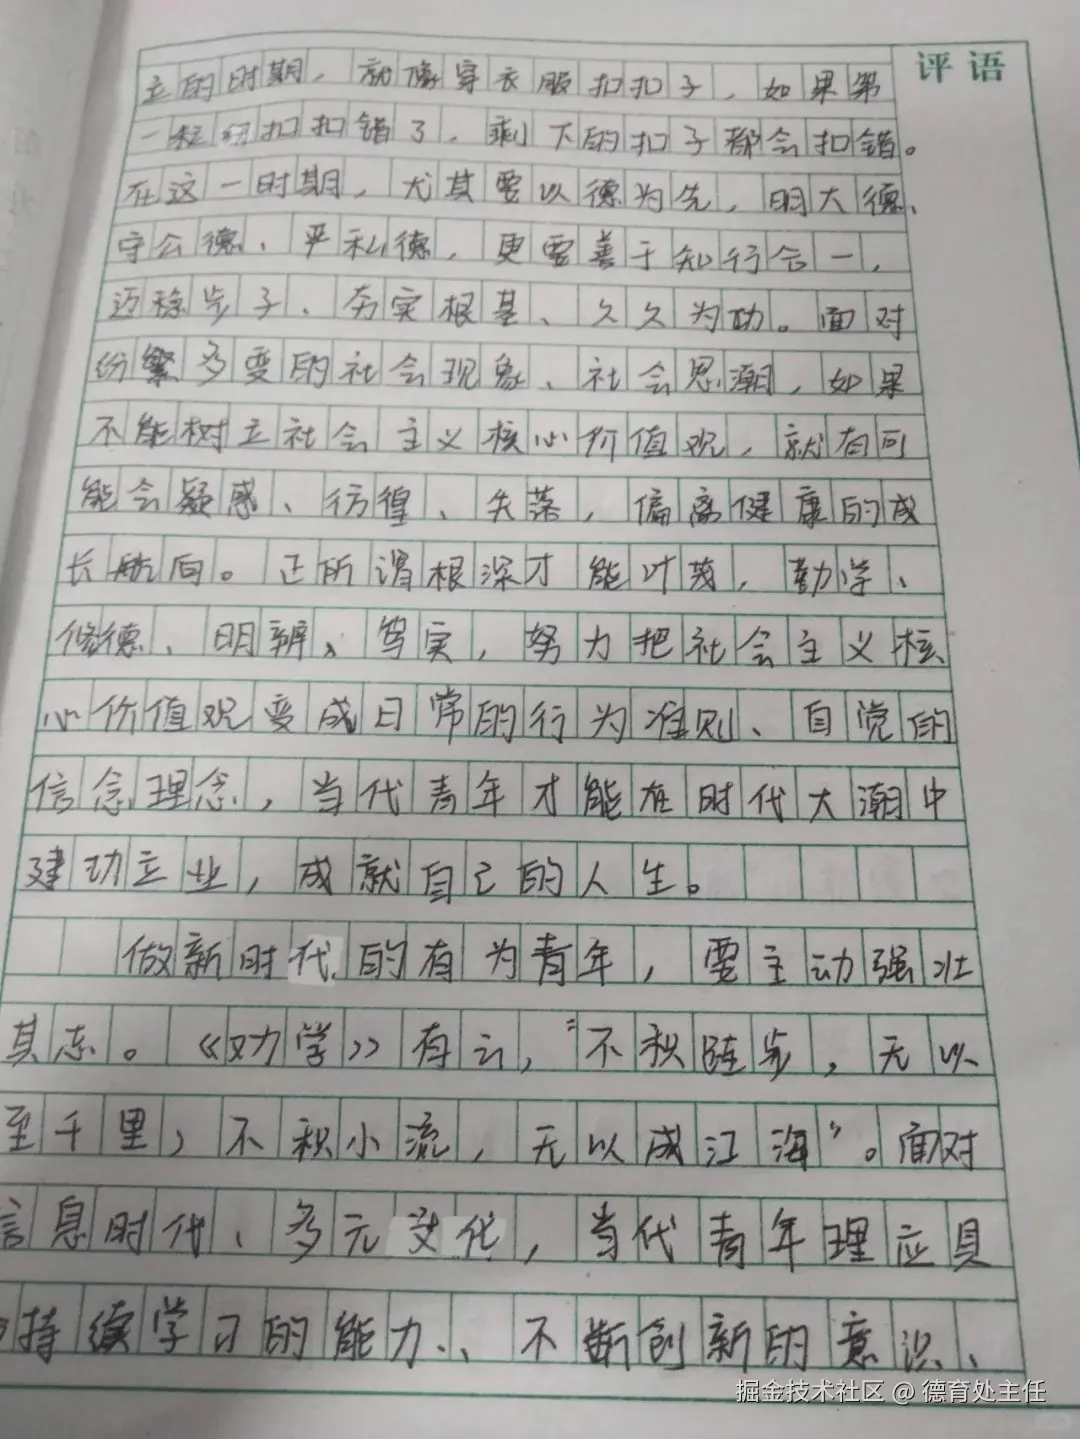 评语
立的时期，就像穿衣服扣扣子，如果第
一粒纽扣扣错了，剩下的扣子都会扣错。
在这一时期，尤其要以德为先，明大德、
守公德、严私德，更要善于知行合一，
迈稳步子、夯实根基、久久为功。面对
纷繁多变的社会现象、社会思潮，如果
不能树立社会主义核心价值观，就有可
能会疑惑、彷徨、失落，偏离健康的成
长航向。正所谓根深才能叶茂，勤学、
修德、明辨、笃实，努力把社会主义核
心价值观变成日常的行为准则、自觉的
信念理念，当代青年才能在时代大潮中
建功立业，成就自己的人生。
做新时代的有为青年，要主动强壮
其志。《劝学》有云，"不积跬步，无以
至千里，不积小流，无以成江海"。面对
信息时代、多元文化，当代青年理应具
持续学习的能力、不断创新的意识、
掘金技术社区 @ 德育处主任